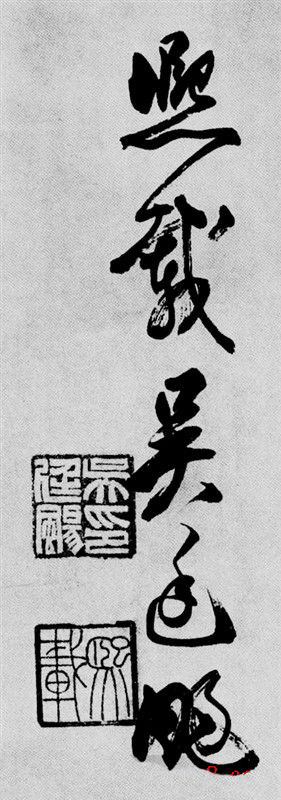 熙載吳廷颺
吳廷颺印
熙載